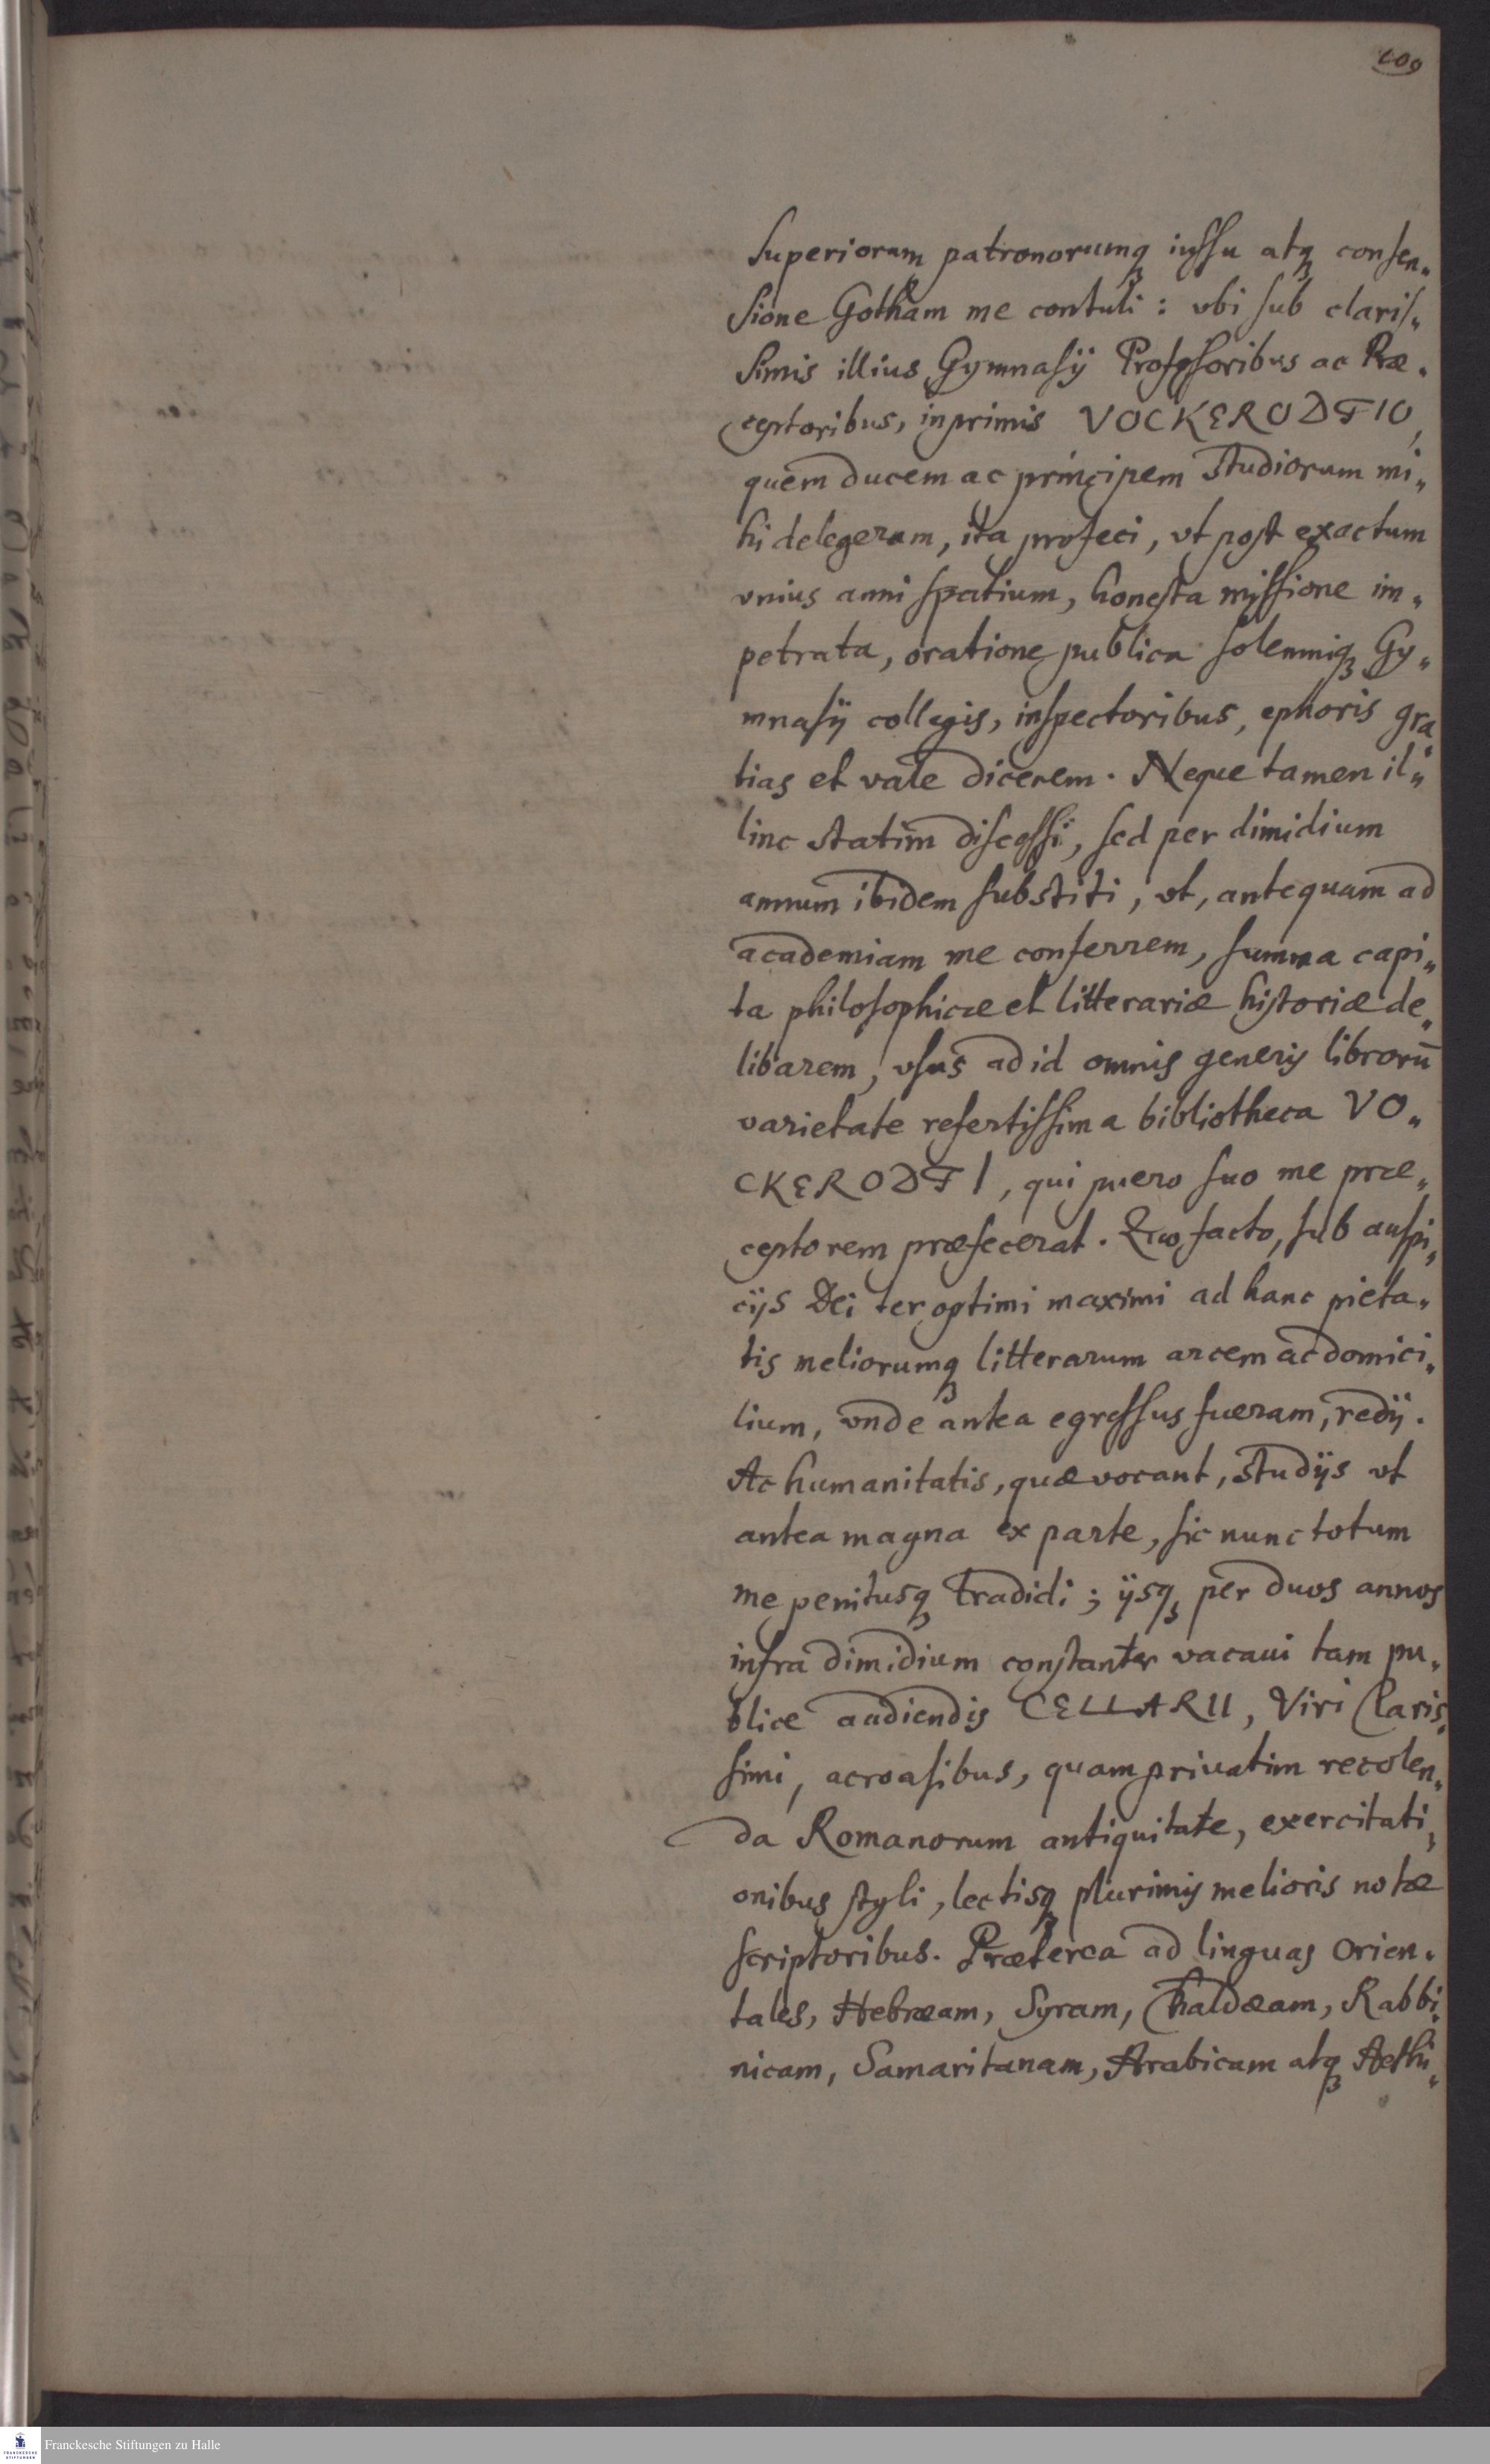 109
Superiorum patronorumq; iussu atq; consen„
sione Gotham me contuli: vbi sub claris„
simis illius Gymnasij Professoribus ac Præ„
ceptoribus, inprimis VOCKERODTIO,
quem ducem ac principem studiorum mi„
hi delegeram, ita profeci, vt post exactum
vnius anni spatium, honesta missione im„
petrata, oratione publica solemniq; Gy„
mnasij collegis, inspectoribus, ephoris gra„
tias et vale dicerem. Neque tamen il„
linc statim discessi, sed per dimidium
annum ibidem substiti, vt, antequam ad
academiam me conferrem, summa capi„
ta philosophicæ et litterariæ historiæ de„
libarem, vsus ad id omnis generis librorū
varietate refertissima bibliotheca VO„
CKERODTI, qui puero suo me præ„
ceptorem præfecerat. Quo facto, sub auspi„
cijs Dei ter optimi maximi ad hanc pieta„
tis meliorumq; litterarum arcem ac domici„
lium, vnde antea egressus fueram, redij.
Ac humanitatis, quæ vocant, studijs vt
antea magna ex parte, sic nunc totum
me penitusq; tradidi; ijsq; per duos annos
infra dimidium constanter vacaui tam pu„
blice audiendis CELLARII, Viri Claris„
simi, acroasibus, quam priuatim recolen„
da Romanorum antiquitate, exercitati„
onibus styli, lectisq; plurimis melioris notæ
scriptoribus. Præterea ad linguas Orien„
tales, Hebræam, Syram, Chaldæam, Rabbi„
nicam, Samaritanam, Arabicam atq; Aethi„
Franckesche Stiftungen zu Halle